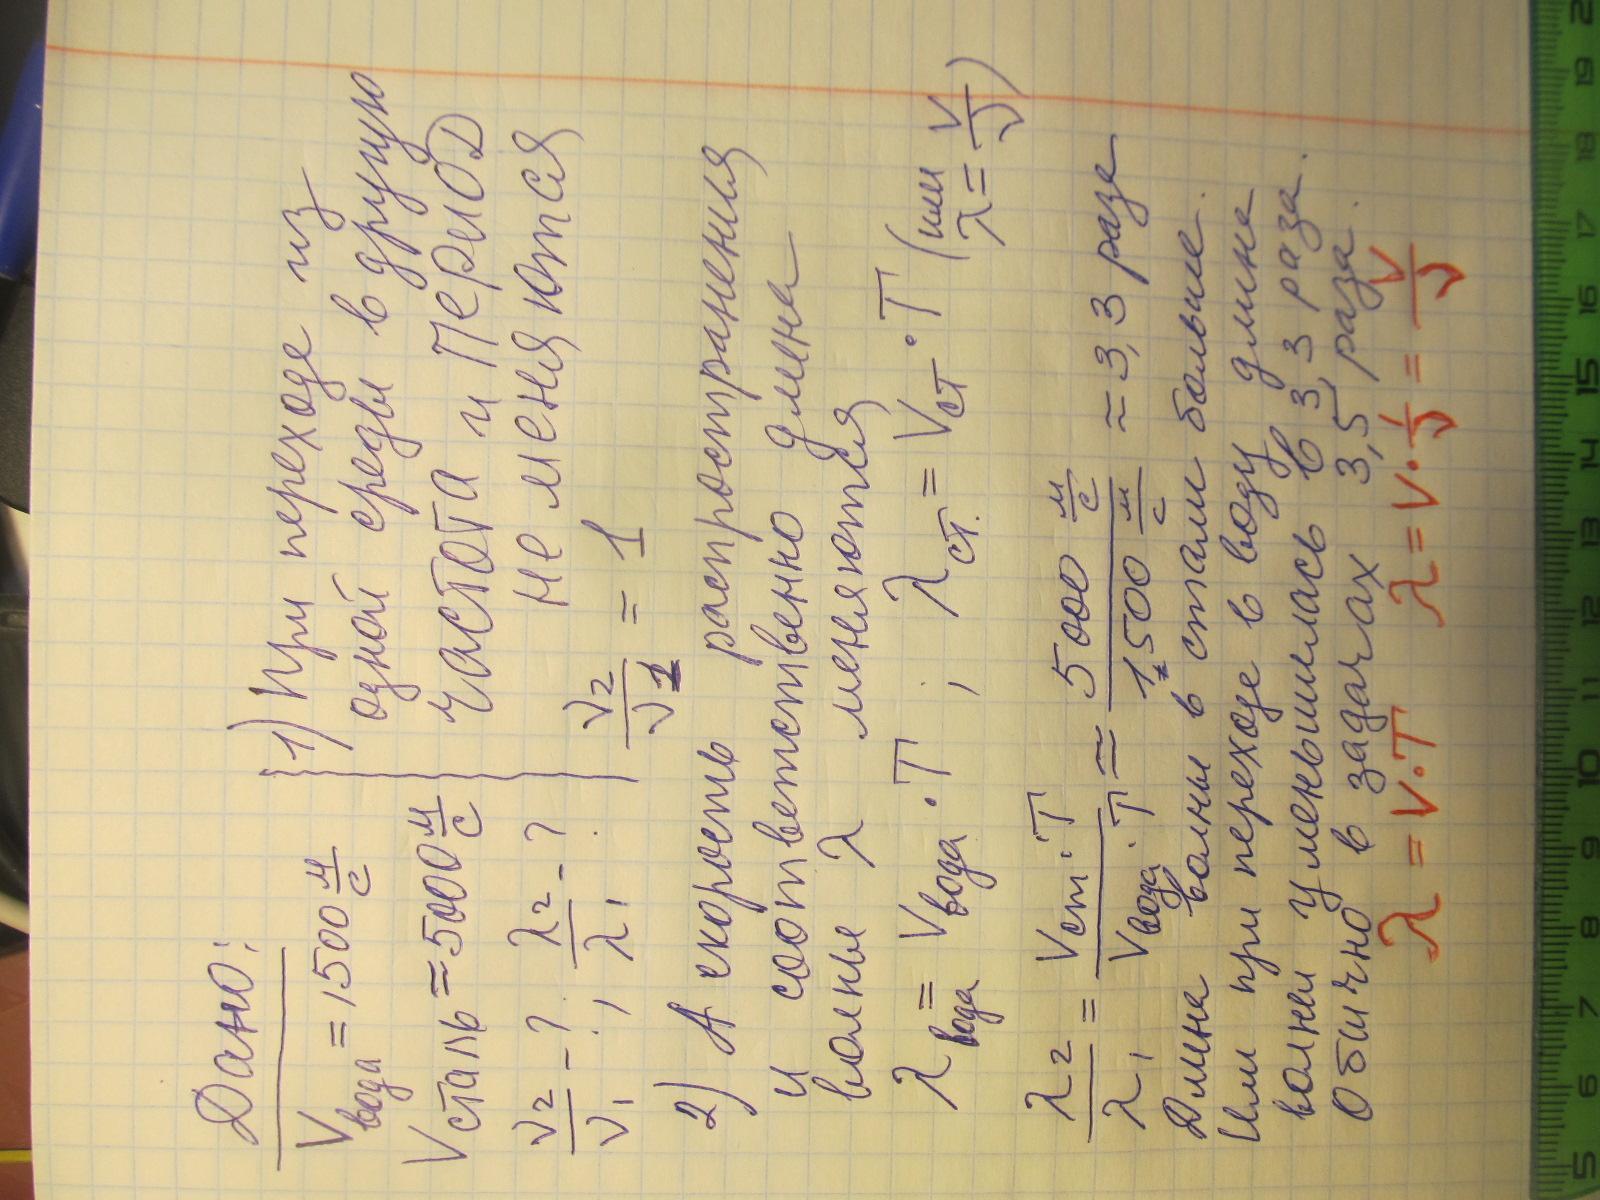 Дано:
Vвода = 1500 м/с
Vсталь ≈ 5000 м/с
ν2/ν1 - ?, λ2/λ1 - ?
1) При переходе из
одной среды в другую
частота и период
не меняются
ν2/ν1 = 1
2) А скорость распространения
и соответственно длина
волны λ меняются
λвода = Vвода · T ; λст. = Vст · T (или λ = V/ν)
λ2/λ1 = Vст · T / Vвода · T ≈ 5000 м/с / 1500 м/с ≈ 3,3 раза
Длина волны в стали больше.
Или при переходе в воду длина
волны уменьшилась в 3,3 раза.
Обычно в задачах 3,5 раза.
λ = V·T λ = V · 1/ν = V/ν
5 6 7 8 9 10 11 12 13 14 15 16 17 18 19 2